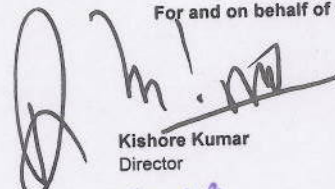 For and on behalf of
Kishore Kumar
Director